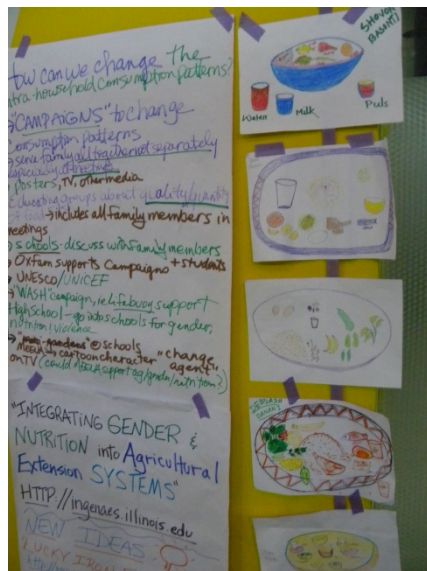 How can we change the
intra-household consumption patterns?
"CAMPAIGNS" to change
consumption patterns
family all together not separately
posters, TV, other media
Educating groups about quality/quantity
→ includes all family members in
meetings
schools - discuss with family members
Oxfam supports campaigns + students
UNESCO/UNICEF
"WASH" campaign, ie Lifebuoy support
High school - go into schools for gender,
nutrition/violence
@ schools
cartoon character "change
agent"
on TV (could support ag/gender/nutrition?)
"INTEGRATING GENDER &
NUTRITION into Agricultural
Extension SYSTEMS"
HTTP://ingenaes.illinois.edu
NEW IDEAS
LUCKY IRON
Water
Milk
Puls